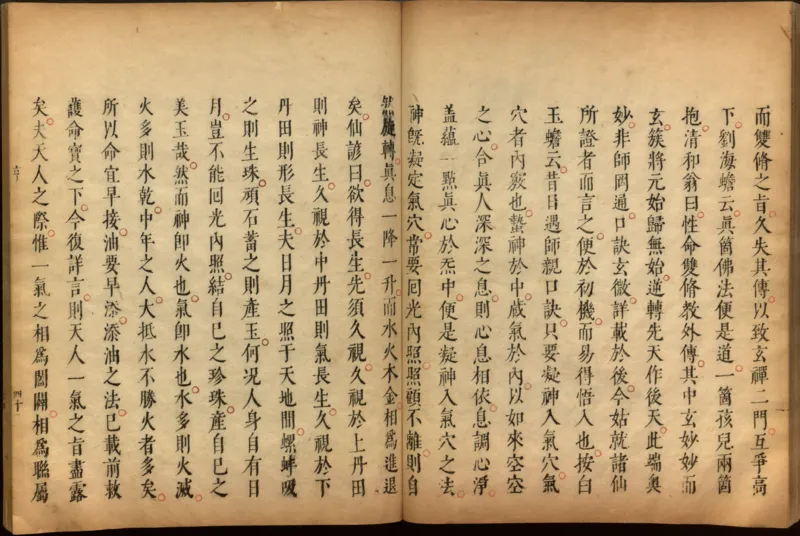 而雙脩之旨久失其傳以致玄禪二門互爭高
下劉海蟾云眞箇佛法便是道一箇孩兒兩箇
抱清和翁曰性命雙脩教外傳其中玄妙妙而
玄簇將元始歸無始逆轉先天作後天此端奧
妙非師罔通口訣玄微詳載於後今姑就諸仙
所證者而言之便於初機而易得悟入也按白
玉蟾云昔日遇師親口訣只要凝神入氣穴氣
穴者內竅也蟄神於中藏氣於內以如來空空
之心合眞人深深之息則心息相依息調心淨
蓋蘊一點眞心於炁中便是凝神入氣穴之法
神旣凝定氣穴常要回光內照照顧不離則自
然旋轉眞息一降一升而水火木金相爲進退
矣仙諺曰欲得長生先須久視久視於上丹田
則神長生久視於中丹田則氣長生久視於下
丹田則形長生夫日月之照于天地間螺蚌吸
之則生珠頑石蓄之則產玉何况人身自有日
月豈不能回光內照結自己之珍珠產自己之
美玉哉然而神卽火也氣卽水也水多則火滅
火多則水乾中年之人大抵水不勝火者多矣
所以命宜早接油要早添添油之法已載前救
護命寶之下今復詳言則天人一氣之旨盡露
矣夫天人之際惟一氣之相爲闔闢相爲聯屬
四十